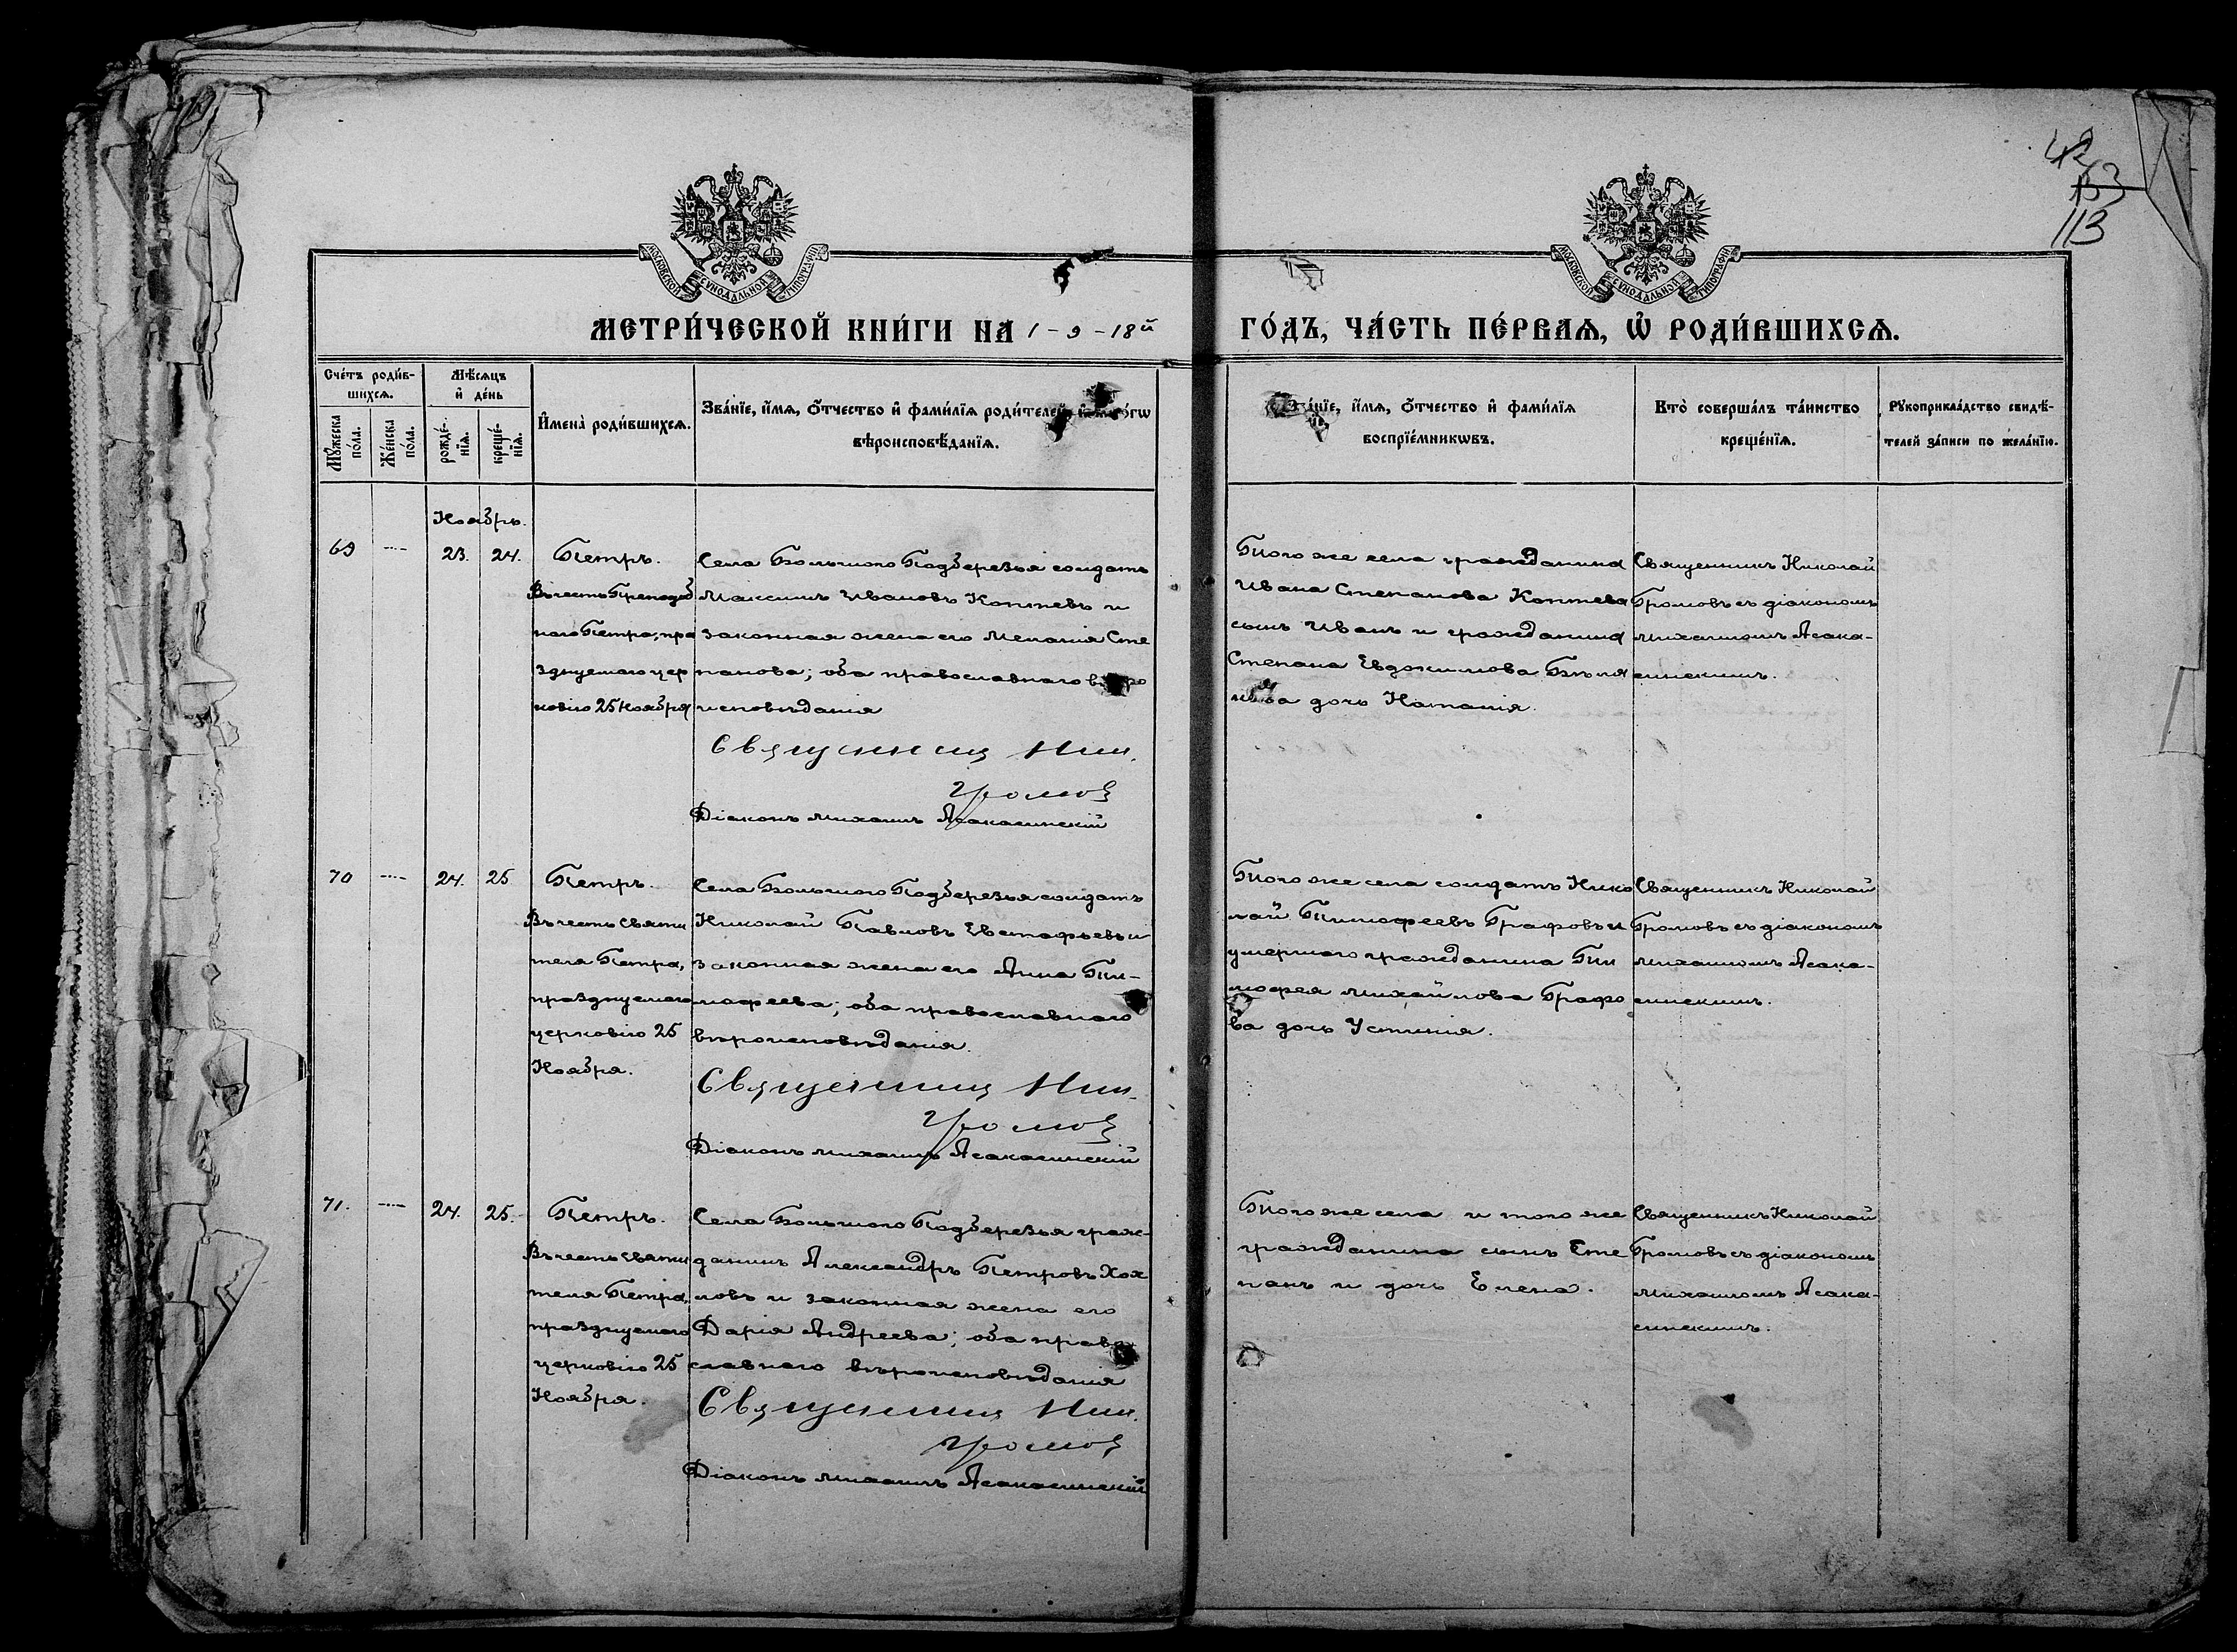 42
153
113
МОСКОВСКОЙ СУНОДАЛЬНОЙ ТИПОГРАФІИ
МОСКОВСКОЙ СУНОДАЛЬНОЙ ТИПОГРАФІИ
МЕТРИ́ЧЕСКОЙ КНИ́ГИ НА 1-9-18й ГО́ДЪ, ЧА́СТЬ ПЕ́РВАЯ, Ѡ РОДИ́ВШИХСѦ.
Сче́тъ роди́в-
шихсѧ.
Мꙋ́жеска по́ла.
Же́нска по́ла.
Мѣ́сѧцъ
и҆ де́нь
рожде́-
нїѧ.
креще́-
нїѧ.
И҆мена̀ роди́вшихсѧ.
Зва́нїе, и҆́мѧ, ѻ҆́тчество и҆ фами́лїѧ роди́телей,
вѣроисповѣ́данїѧ.
Зва́нїе, и҆́мѧ, ѻ҆́тчество и҆ фами́лїѧ
воспрїе́мникѡвъ.
Кто̀ соверша́лъ та́инство
креще́нїѧ.
Рꙋкоприкла́дство свидѣ́-
телей за́писи по жела́нїю.
Ноябрь.
69
23. 24.
Петръ.
Въ честь Преподоб
наго Петра, пра
зднуемаго цер
ковію 25 Ноября
Села Большого Подберезья солдатъ
Максимъ Ивановъ Коптевъ и
законная жена его Меланія Сте
панова; оба православнаго
исповѣданія
Священникъ Ник.
Громовъ
Діаконъ Михаилъ Асакасинскій
Того же села гражданина
Ивана Степанова Коптева
сынъ Иванъ и гражданина
Степана Евдокимова
дочь Наталія.
Священникъ Николай
Громовъ съ діакономъ
Михаиломъ Асака-
синскимъ.
70
24. 25
Петръ.
Въ честь Святи
теля Петра,
празднуемаго
церковію 25
Ноября.
Села Большого Подберезья солдатъ
Николай Павловъ Евстафьевъ и
законная жена его Анна Ти-
мофеева; оба православнаго
вѣроисповѣданія.
Священникъ Ник.
Громовъ
Діаконъ Михаилъ Асакасинскій
Того же села солдатъ Нико
лай Тимофеевъ Графовъ и
умершаго гражданина Ти
мофея Михайлова Графо
ва дочь Устинія.
Священникъ Николай
Громовъ съ діакономъ
Михаиломъ Асака-
синскимъ.
71.
24. 25.
Петръ.
Въ честь Святи
теля Петра,
празднуемаго
церковію 25
Ноября.
Села Большого Подберезья граж-
данинъ Александръ Петровъ Хох
ловъ и законная жена его
Дарія Андреева; оба право
славнаго вѣроисповѣданія
Священникъ Ник.
Громовъ
Діаконъ Михаилъ Асакасинскій
Того же села и того же
гражданина сынъ Сте
панъ и дочь Елена.
Священникъ Николай
Громовъ съ діакономъ
Михаиломъ Асака-
синскимъ.